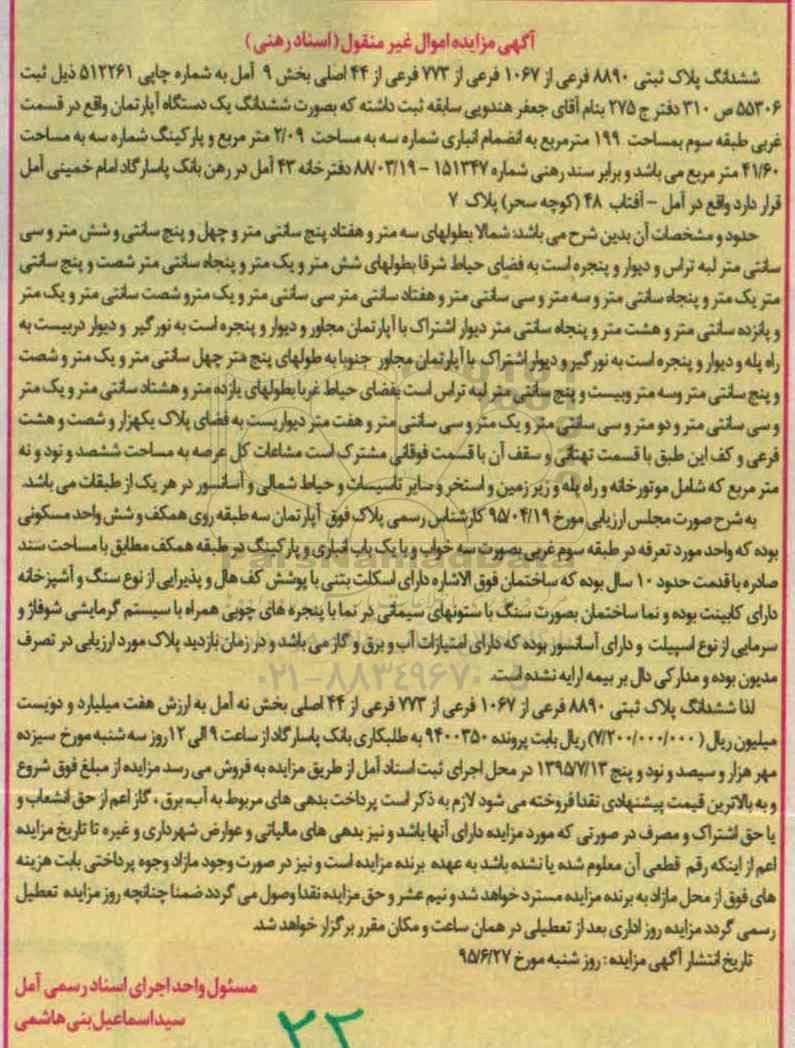 آگهی مزایده اموال غیر منقول (اسناد رهنی)
ششدانگ پلاک ثبتی ۸۸۹۰ فرعی از ۱۰۶۷ فرعی از ۷۷۳ فرعی از ۴۴ اصلی بخش ۹ آمل به شماره چاپی ۵۱۲۲۶۱ ذیل ثبت
۵۵۳۰۶ ص ۳۱۰ دفتر ج ۲۷۵ بنام آقای جعفر هندویی سابقه ثبت داشته که بصورت ششدانگ یک دستگاه آپارتمان واقع در قسمت
غربی طبقه سوم بمساحت ۱۹۹ مترمربع به انضمام انباری شماره سه به مساحت ۲/۰۹ متر مربع و پارکینگ شماره سه به مساحت
۴۱/۶۰ متر مربع می باشد و برابر سند رهنی شماره ۱۵۱۳۴۷ - ۸۸/۰۳/۱۹ دفترخانه ۴۳ آمل در رهن بانک پاسارگاد امام خمینی آمل
قرار دارد واقع در آمل - آفتاب ۴۸ (کوچه سحر) پلاک ۷
حدود و مشخصات آن بدین شرح می باشد: شمالا بطولهای سه متر و هفتاد پنج سانتی متر و چهل و پنج سانتی و شش متر و سی
سانتی متر لبه تراس و دیوار و پنجره است به فضای حیاط شرقا بطولهای شش متر و یک متر و پنجاه سانتی متر شصت و پنج سانتی
متر یک متر و پنجاه سانتی متر و سه متر و سی سانتی متر و هفتاد سانتی متر سی سانتی متر و یک مترو شصت سانتی متر و یک متر
و پانزده سانتی متر و هشت متر و پنجاه سانتی متر دیوار اشتراک با آپارتمان مجاور و دیوار و پنجره است به نورگیر و دیوار دربیست به
راه پله و دیوار و پنجره است به نورگیر و دیوار اشتراک با آپارتمان مجاور جنوبا به طولهای پنج متر چهل سانتی متر و یک متر و شصت
و پنج سانتی متر وسه متر وبیست و پنج سانتی متر لبه تراس است بفضای حیاط غربا بطولهای یازده متر و هشتاد سانتی متر و یک متر
و سی سانتی متر و دو متر و سی سانتی متر و یک متر و سی سانتی متر و هفت متر دیواریست به فضای پلاک یکهزار و شصت و هشت
فرعی و کف این طبق با قسمت تهتانی و سقف آن با قسمت فوقانی مشترک است مشاعات کل عرصه به مساحت ششصد و نود و نه
متر مربع که شامل موتورخانه و راه پله و زیر زمین و استخر و سایر تاسیسات و حیاط شمالی و آسانسور در هر یک از طبقات می باشد.
به شرح صورت مجلس ارزیابی مورخ ۹۵/۰۴/۱۹ کارشناس رسمی پلاک فوق آپارتمان سه طبقه روی همکف و شش واحد مسکونی
بوده که واحد مورد تعرفه در طبقه سوم غربی بصورت سه خواب و با یک باب انباری و پارکینگ در طبقه همکف مطابق با مساحت سند
صادره با قدمت حدود ۱۰ سال بوده که ساختمان فوق الاشاره دارای اسکلت بتنی با پوشش کف هال و پذیرایی از نوع سنگ و آشپزخانه
دارای کابینت بوده و نما ساختمان بصورت سنگ با ستونهای سیمانی در نما با پنجره های چوبی همراه با سیستم گرمایشی شوفاژ و
سرمایی از نوع اسپیلت و دارای آسانسور بوده که دارای امتیازات آب و برق و گاز می باشد و در زمان بازدید پلاک مورد ارزیابی در تصرف
مدیون بوده و مدارکی دال بر بیمه ارایه نشده است.
لذا ششدانگ پلاک ثبتی ۸۸۹۰ فرعی از ۱۰۶۷ فرعی از ۷۷۳ فرعی از ۴۴ اصلی بخش نه آمل به ارزش هفت میلیارد و دویست
میلیون ریال (۷/۲۰۰/۰۰۰/۰۰۰) ریال بابت پرونده ۹۴۰۰۳۵۰ به طلبکاری بانک پاسارگاد از ساعت ۹ الی ۱۲ روز سه شنبه مورخ سیزده
مهر هزار و سیصد و نود و پنج ۱۳۹۵/۷/۱۳ در محل اجرای ثبت اسناد آمل از طریق مزایده به فروش می رسد مزایده از مبلغ فوق شروع
و به بالاترین قیمت پیشنهادی نقدا فروخته می شود لازم به ذکر است پرداخت بدهی های مربوط به آب، برق ، گاز اعم از حق انشعاب و
یا حق اشتراک و مصرف در صورتی که مورد مزایده دارای آنها باشد و نیز بدهی های مالیاتی و عوارض شهرداری و غیره تا تاریخ مزایده
اعم از اینکه رقم قطعی آن معلوم شده یا نشده باشد به عهده برنده مزایده است و نیز در صورت وجود مازاد وجوه پرداختی بابت هزینه
های فوق از محل مازاد به برنده مزایده مسترد خواهد شد و نیم عشر و حق مزایده نقدا وصول می گردد ضمنا چنانچه روز مزایده تعطیل
رسمی گردد مزایده روز اداری بعد از تعطیلی در همان ساعت و مکان مقرر برگزار خواهد شد.
تاریخ انتشار آگهی مزایده : روز شنبه مورخ ۹۵/۶/۲۷
مسئول واحد اجرای اسناد رسمی آمل
سید اسماعیل بنی هاشمی
۲۲
ParsNamadData
۰۲۱-۸۸۳۴۹۶۷۰